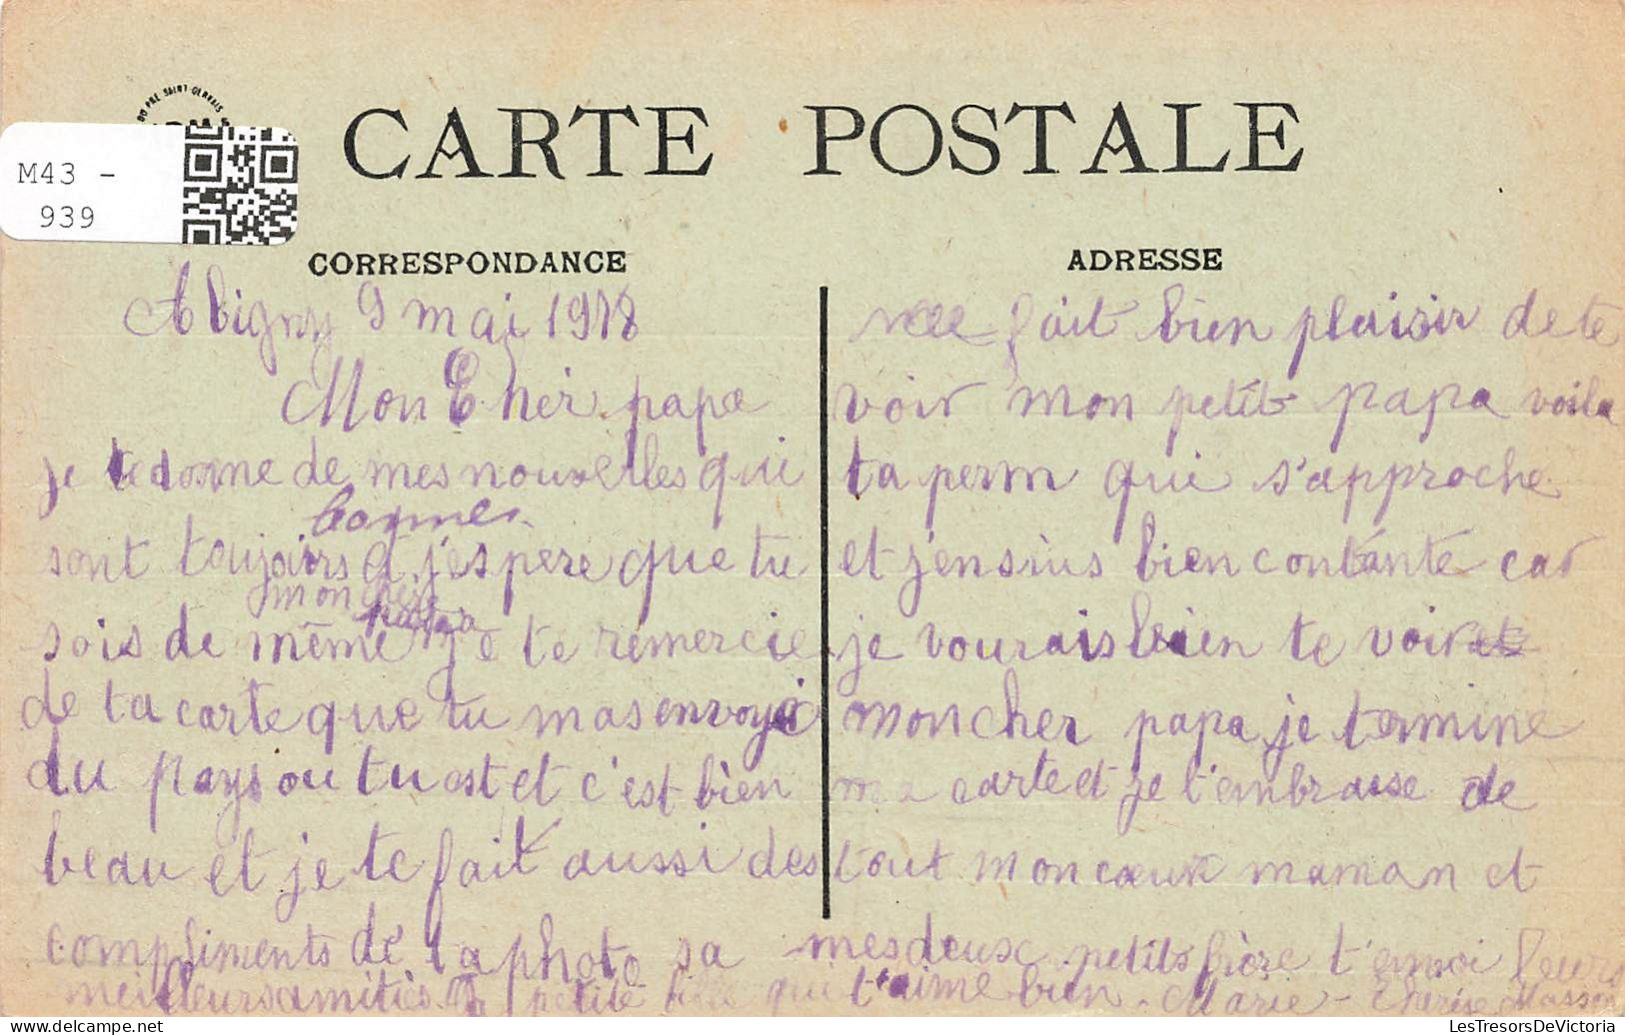 DU PRÉ SAINT-GERVAIS
M43 -
939
CARTE POSTALE
CORRESPONDANCE
ADRESSE
Abigny 9 mai 1918
Mon Cher papa
je te donne de mes nouvelles qui
bonnes
sont toujours j'espere que tu
mon cher
papa
sois de même je te remercie
de ta carte que tu mas envoyé
du pays ou tu est et c'est bien
beau et je te fait aussi des
compliments de ta photo sa
me fait bien plaisir de te
voir mon petit papa voila
ta perm qui s'approche
et j'en suis bien contante car
je vourais bien te voir
mon cher papa je termine
ma carte et je t'embrasse de
tout mon cœur maman et
mes deux petits frère t'envoi leurs
meilleurs amitiés. Ta petite fille qui t'aime bien. Marie-Thérèse Masson
LesTresorsDeVictoria